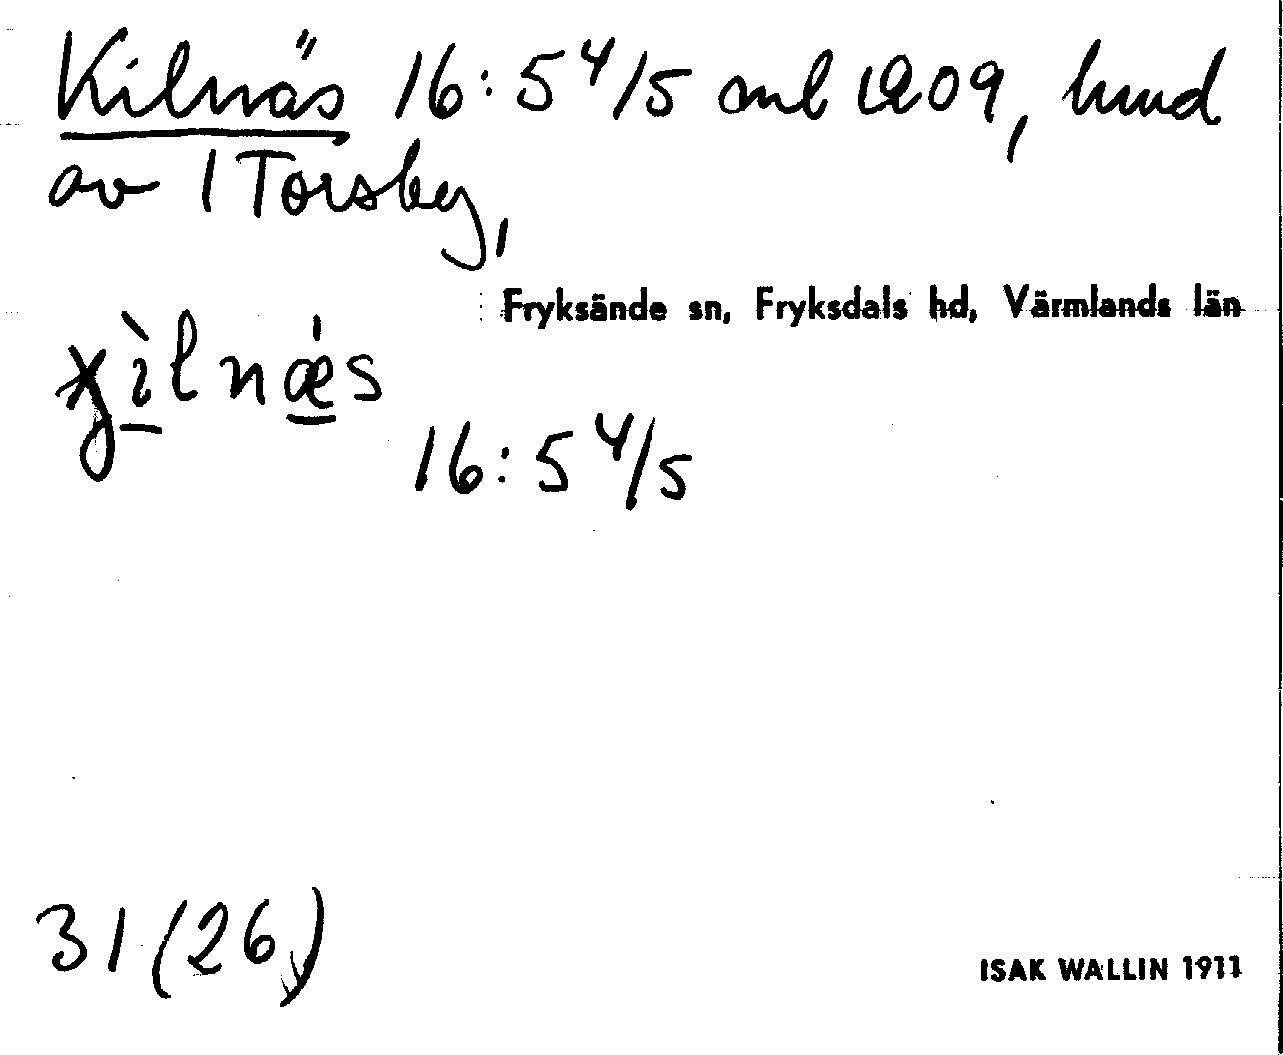 Kilnäs 16:5 4/5 enl 1909, hmd
av 1 Torsby,
Fryksände sn, Fryksdals hd, Värmlands län
16:5 4/5
31 (26)
ISAK WALLIN 1911